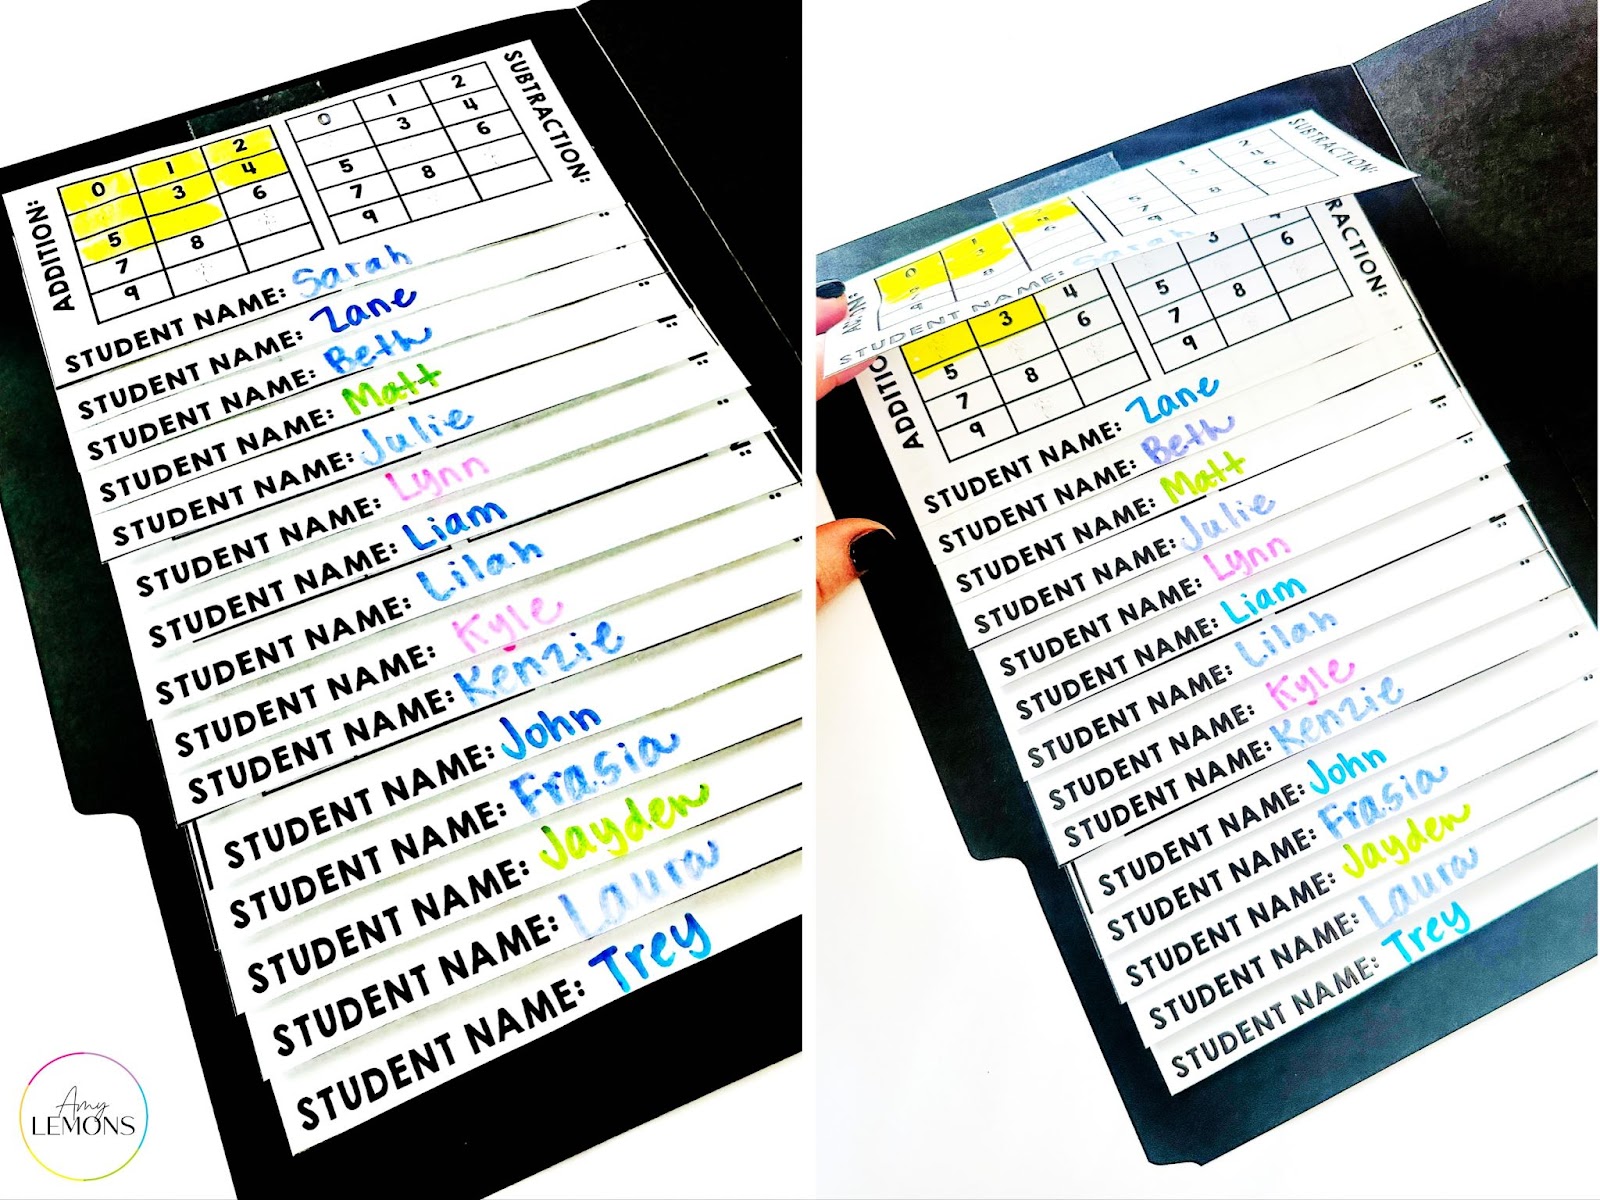 ADDITION:
0 1 2
3 4
5 6
7 8
9
SUBTRACTION:
0 1 2
3 4
5 6
7 8
9
STUDENT NAME: Sarah
STUDENT NAME: Zane
STUDENT NAME: Beth
STUDENT NAME: Matt
STUDENT NAME: Julie
STUDENT NAME: Lynn
STUDENT NAME: Liam
STUDENT NAME: Lilah
STUDENT NAME: Kyle
STUDENT NAME: Kenzie
STUDENT NAME: John
STUDENT NAME: Frasia
STUDENT NAME: Jayden
STUDENT NAME: Laura
STUDENT NAME: Trey
Amy
LEMONS
SUBTRACTION:
STUDENT NAME: Sarah
3 4
5 6
7 8
9
3
5 6
7 8
9
STUDENT NAME: Zane
STUDENT NAME: Beth
STUDENT NAME: Matt
STUDENT NAME: Julie
STUDENT NAME: Lynn
STUDENT NAME: Liam
STUDENT NAME: Lilah
STUDENT NAME: Kyle
STUDENT NAME: Kenzie
STUDENT NAME: John
STUDENT NAME: Frasia
STUDENT NAME: Jayden
STUDENT NAME: Laura
STUDENT NAME: Trey